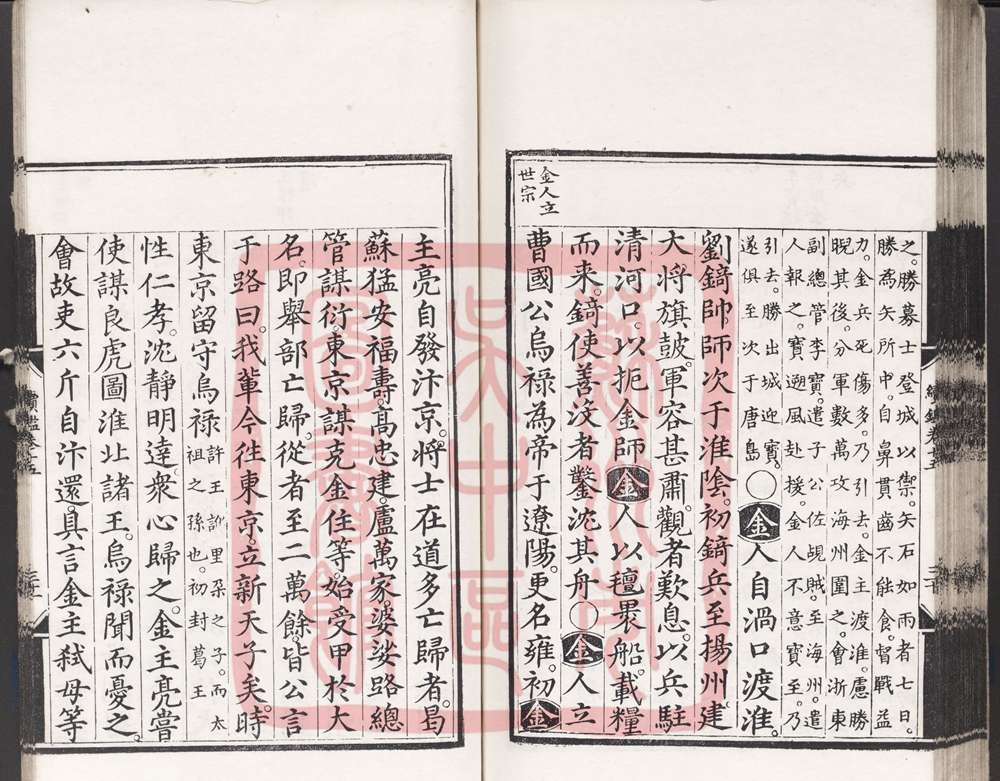 金人立
世宗
之。勝募士登城以禦。矢石如雨者七日。
勝為矢所中。自鼻貫齒不能食。督戰益
力。金兵死傷多。乃引去。金主渡淮。慮勝
睨其後。分軍數萬攻海州圍之。會浙東
副總管李寶。遣子公佐覘賊。至海州。遣
人報之。寶遡風赴援。金人不意寶至。乃
引去。勝出城迎寶。
遂俱至次于唐島
○金人自渦口渡淮。
劉錡帥師次于淮陰。初錡兵至揚州。建
大將旗鼓。軍容甚肅。觀者歎息。以兵駐
清河口。以扼金師金人以氊褁船。載糧
而来。錡使善没者鑿沈其舟○金人立
曹國公烏禄為帝于遼陽。更名雍。初金
主亮自發汴京。將士在道多亡歸者。曷
蘇猛安福壽。高忠建。盧萬家。婆娑路總
管謀衍。東京謀克金住等始受甲於大
名。即舉部亡歸。從者至二萬餘。皆公言
于路曰。我輩今往東京。立新天子矣。時
東京留守烏禄
許王訛里朶之子。而太
祖之孫也。初封葛王
性仁孝。沈靜明達。衆心歸之。金主亮嘗
使謀良虎圖淮北諸王。烏禄聞而憂之。
會故吏六斤自汴還。具言金主弑母等
續鑑卷十五
蘇州市
吴中區
圖書館